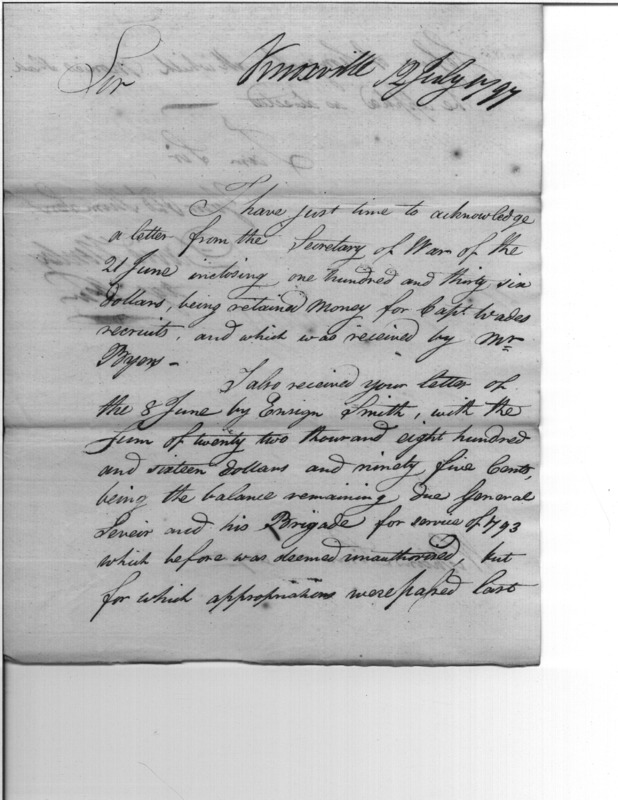 Sir
Knoxville 12 July 1797
I have just time to acknowledge
a letter from the Secretary of War of the
21 June inclosing one hundred and thirty six
dollars, being retained money for Capt Wades
recruits, and which was received by Mr
Byers -
I also received your letter of
the 8 June by Ensign Smith, with the
sum of twenty two thousand eight hundred
and sixteen dollars and ninety five Cents,
being the balance remaining due General
Sevier and his Brigade for service of 1793
which before was deemed unauthorised, but
for which appropriations were passed last